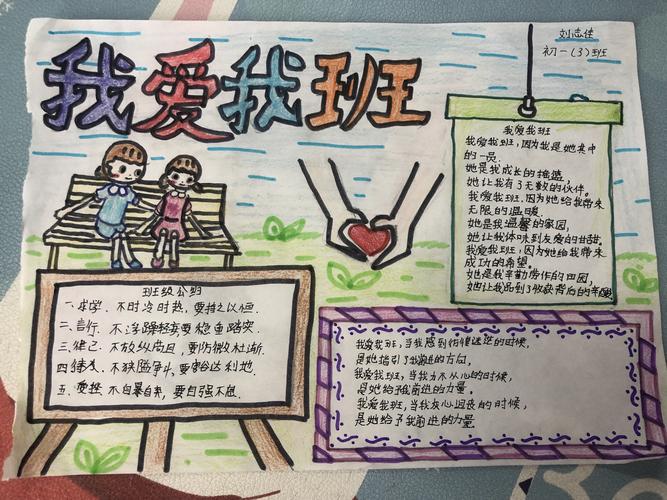 我爱我班
刘志佳
初一(3)班
我爱我班
我爱我班,因为我是她其中
的一员。
她是我成长的摇篮,
她让我有了无数的伙伴。
我爱我班,因为她给我带来
无限的温暖。
她是我温馨的家园,
她让我体味到友爱的甘甜。
我爱我班,因为她给我带来
成功的希望。
她是我辛勤劳作的田园,
她让我品到了收获背后的辛酸
班级公约
一、求学. 不时冷时热,要持之以恒.
二、言行. 不浮躁轻率要稳重踏实.
三、律己. 不放纵苟且,要防微杜渐.
四、待友. 不狭隘争斗,要豁达利他.
五、 不自暴自弃,要自强不息.
我爱我班,当我感到彷徨迷茫的时候,
是她指引了我前进的方向。
我爱我班,当我力不从心的时候,
是她给予我前进的力量。
我爱我班,当我灰心沮丧的时候,
是她给予我前进的力量